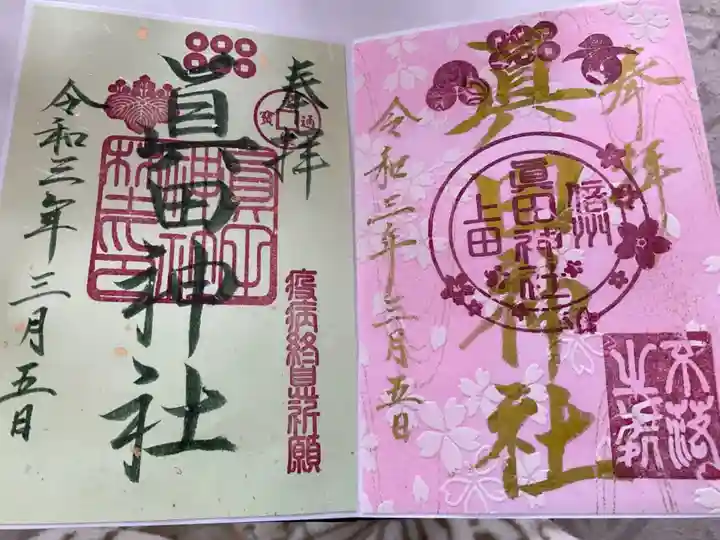 奉拝
眞田神社
令和三年三月五日
疫病終息祈願
奉拝
真田神社
令和三年三月五日
眞田神社
信州
上田
不落
之新